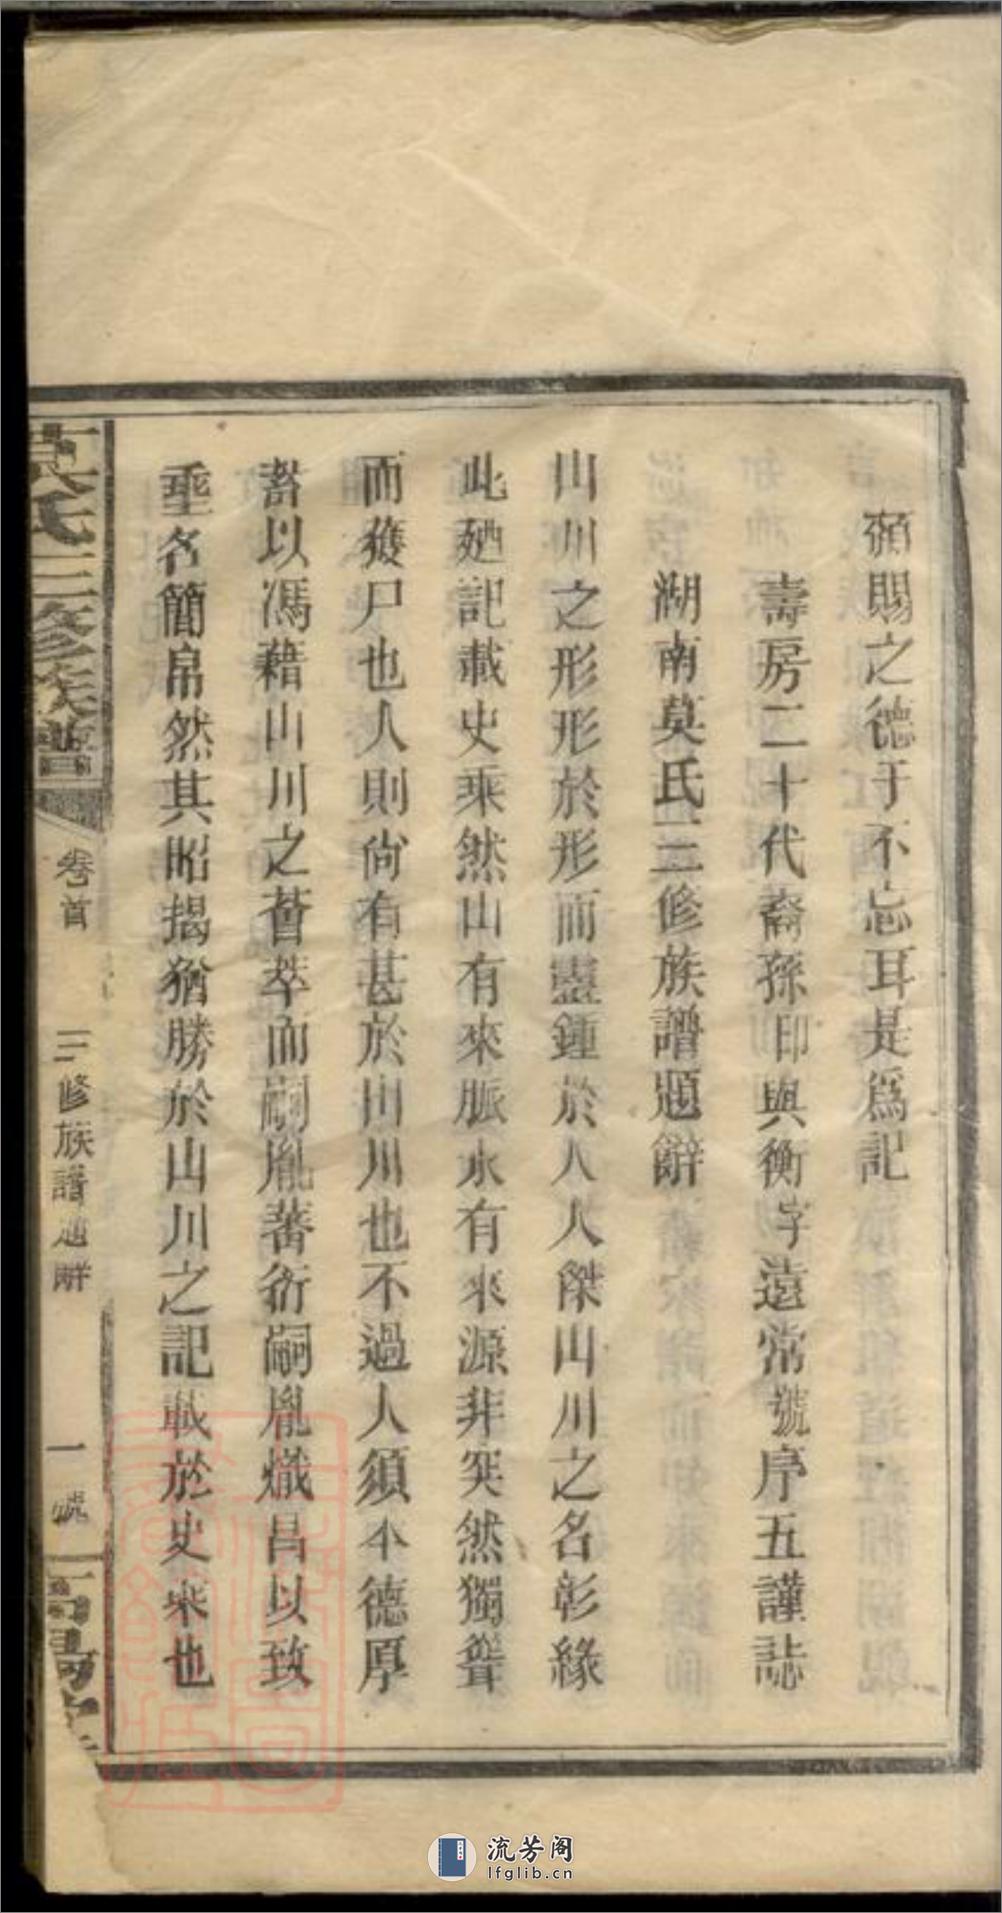 賜之德于不忘耳是爲記
壽房二十代裔孫印興衡字遠常號序五謹誌
湖南莫氏三修族譜題辭
山川之形形於形而靈鍾於人人傑山川之名彰緣
此廼記載史乘然山有來脈水有來源非突然獨聳
而獲尸也人則尙有甚於山川也不過人須本德厚
以馮藉山川之薈萃而嗣胤蕃衍嗣胤熾昌以致
垂名簡帛然其昭揭猶勝於山川之記載於史乘也
莫氏三修族譜
卷首
三修族譜題辭
一號
流芳阁
lfglib.cn